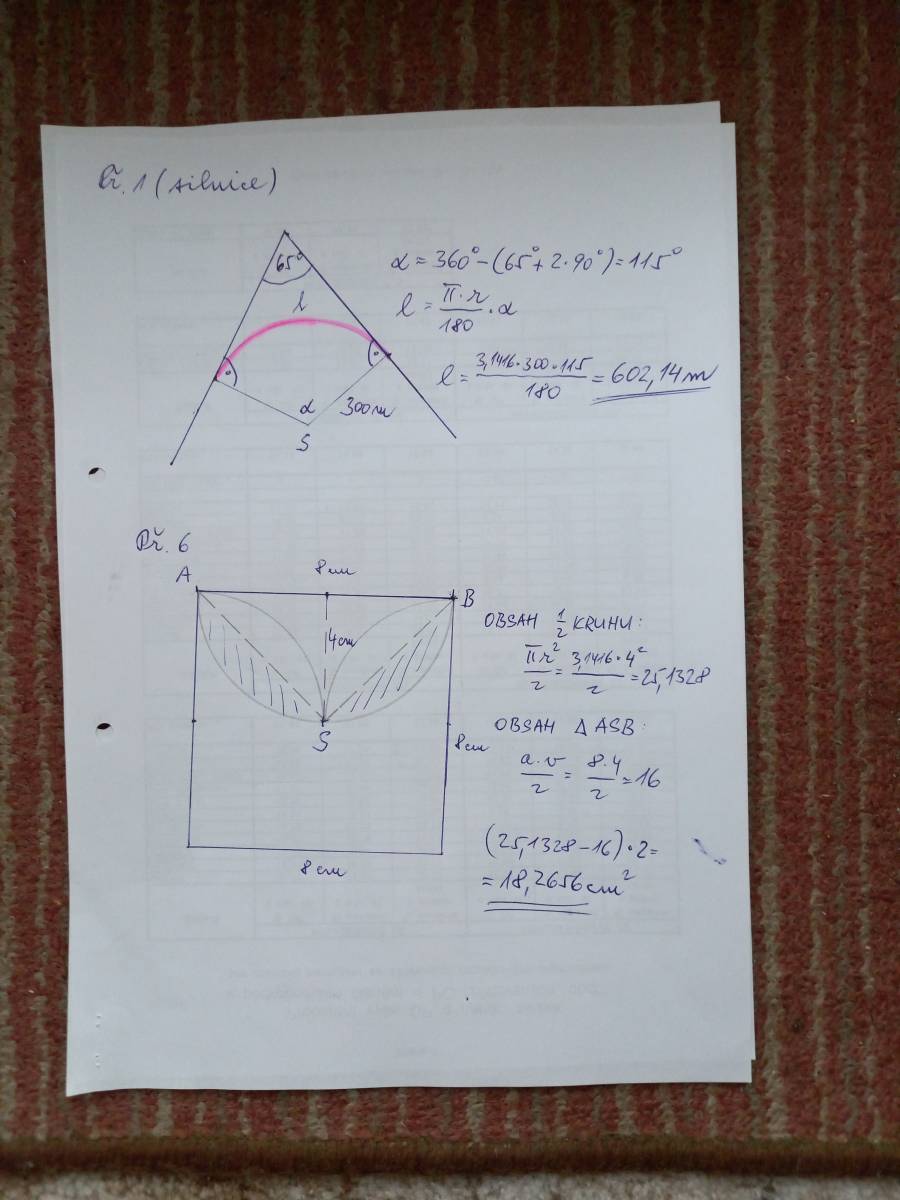 Př. 1 (silnice)
65°
α = 360° - (65° + 2·90°) = 115°
l
l = π·r/180 · α
l = 3,1416·300·115/180 = 602,14 m
α
300 m
S
Př. 6
A
8 cm
B
4 cm
OBSAH 1/2 KRUHU:
πr²/2 = 3,1416·4²/2 = 25,1328
S
8 cm
OBSAH Δ ASB:
a·v/2 = 8·4/2 = 16
8 cm
(25,1328 - 16)·2 =
= 18,2656 cm²